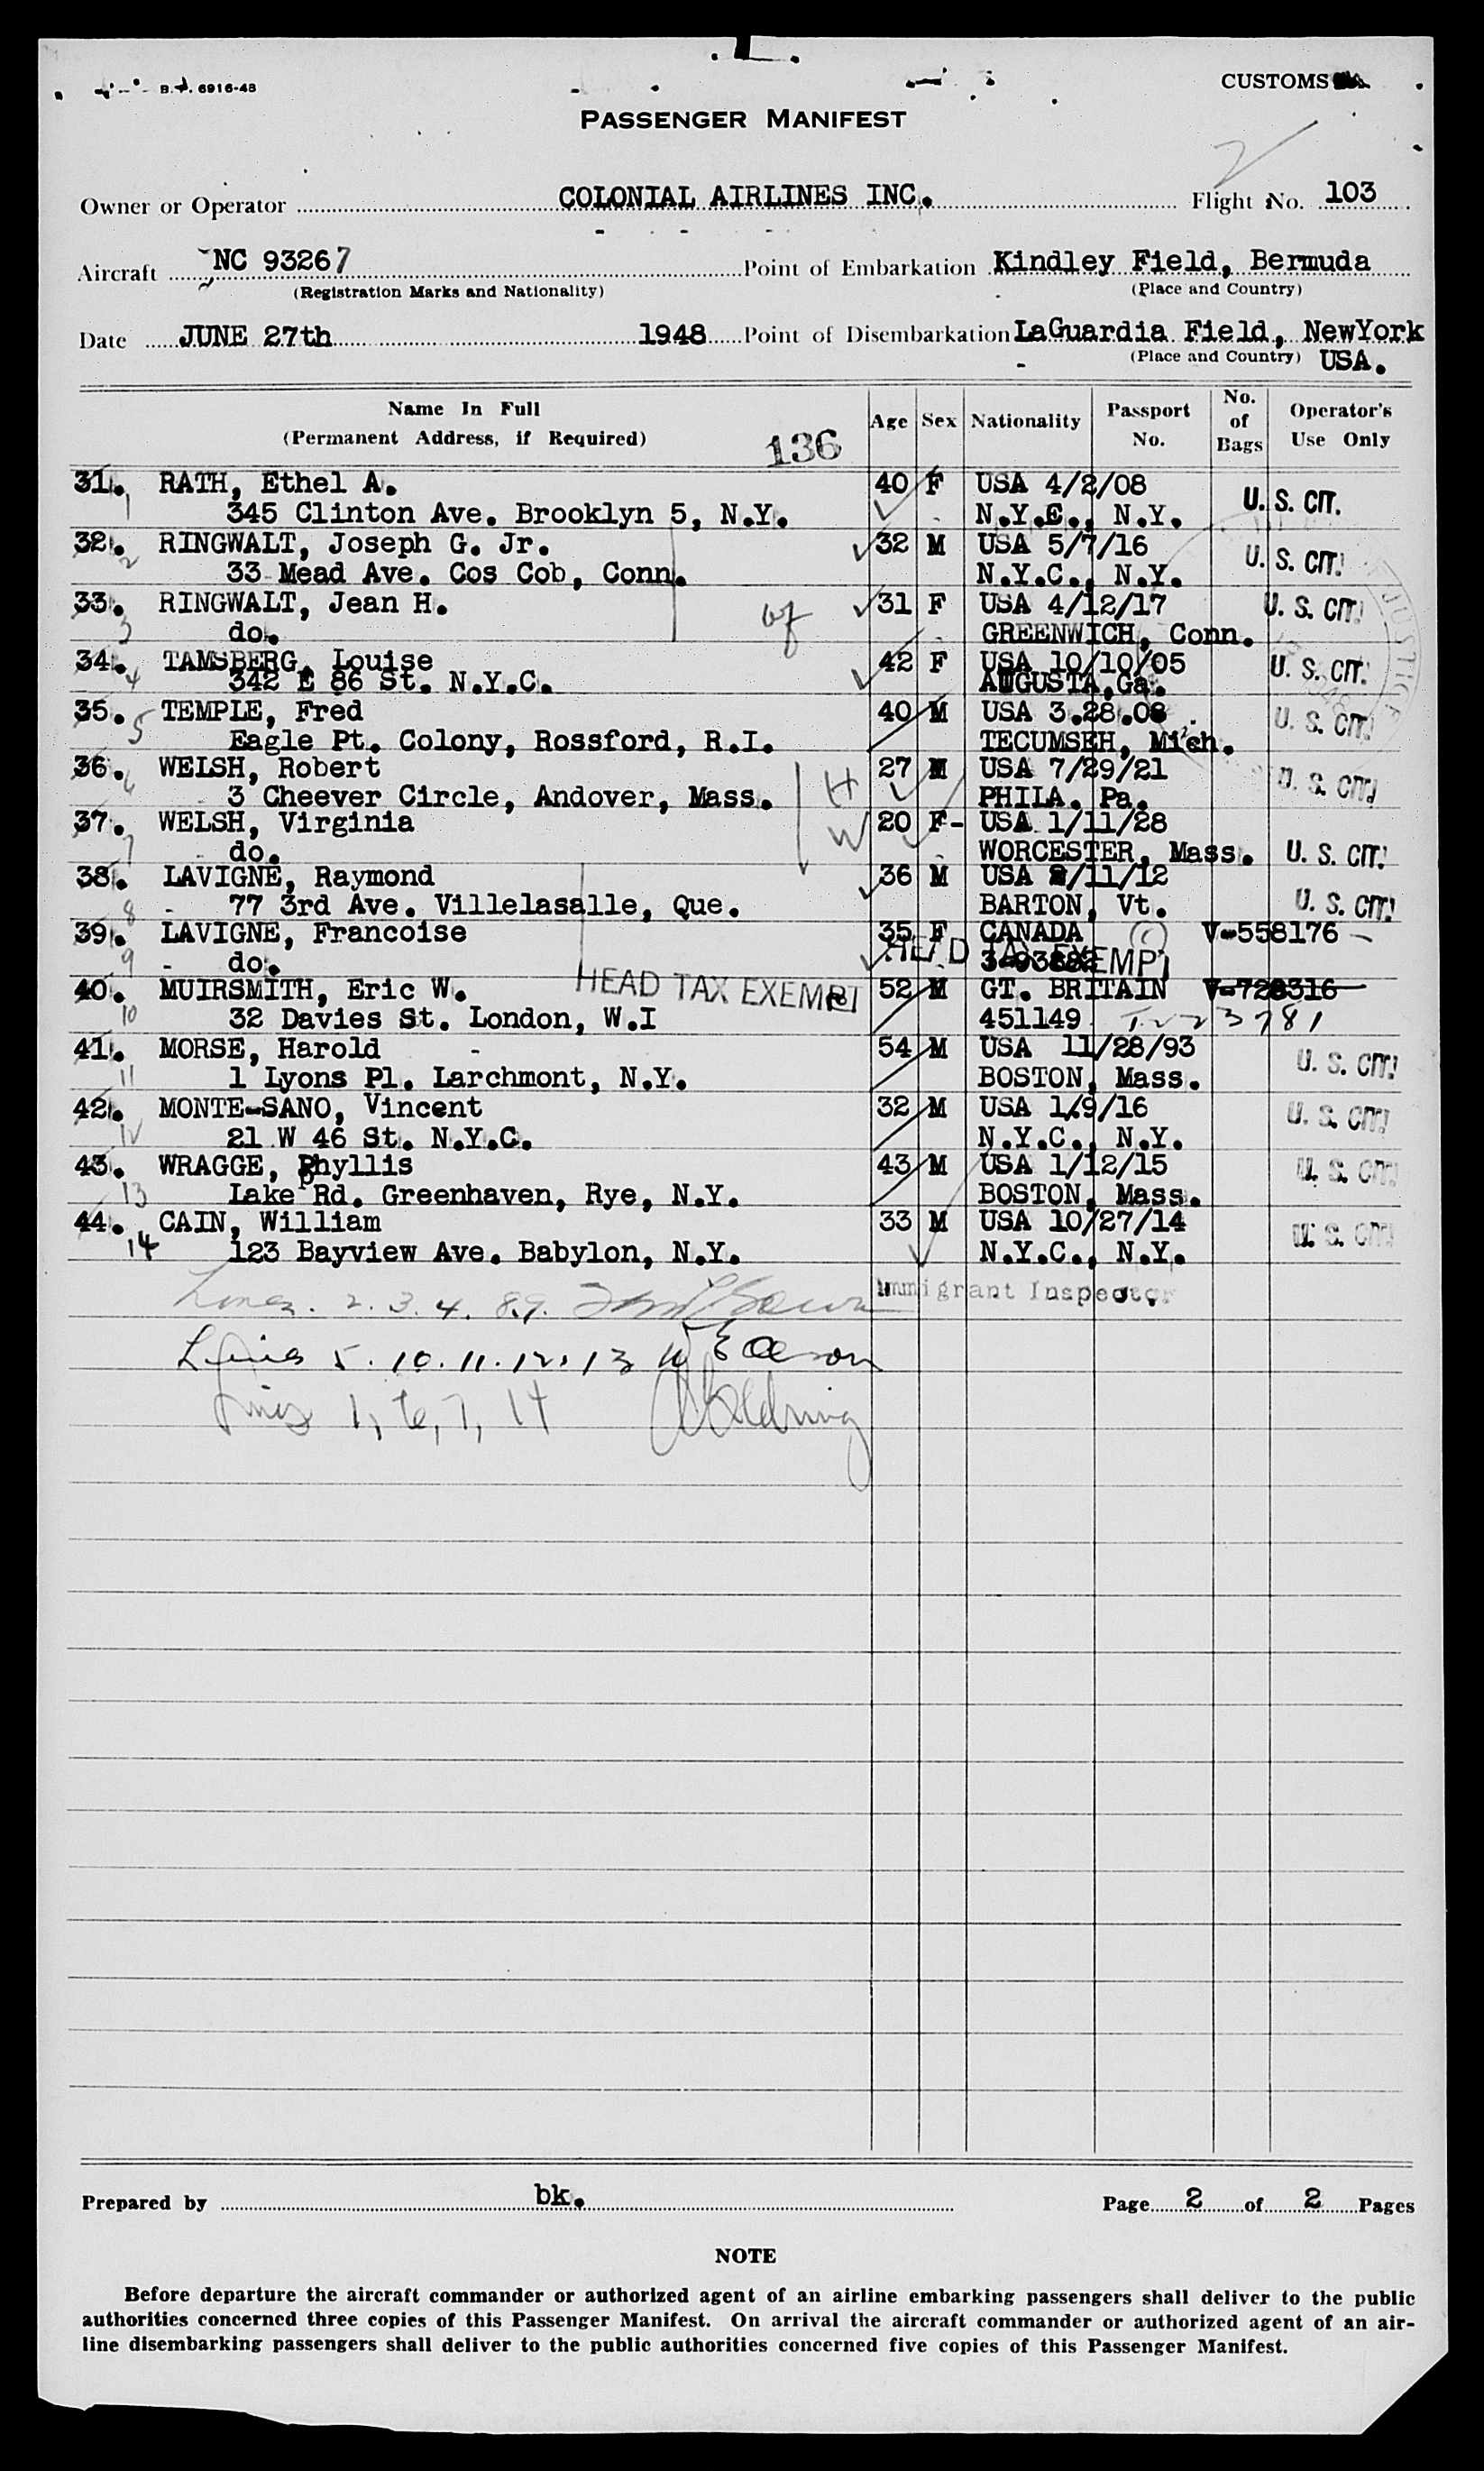 B.A. 6916-48
CUSTOMS
PASSENGER MANIFEST
Owner or Operator COLONIAL AIRLINES INC. Flight No. 103
Aircraft NC 93267 Point of Embarkation Kindley Field, Bermuda
(Registration Marks and Nationality) (Place and Country)
Date JUNE 27th 1948 Point of Disembarkation LaGuardia Field, NewYork
(Place and Country) USA.
Name In Full Age Sex Nationality Passport No. No. of Bags Operator's Use Only
(Permanent Address, if Required) 136
31. RATH, Ethel A. 40 F USA 4/2/08 U. S. CIT.
1 345 Clinton Ave. Brooklyn 5, N.Y. N.Y.C., N.Y.
32. RINGWALT, Joseph G. Jr. 32 M USA 5/7/16 U. S. CIT.
2 33 Mead Ave. Cos Cob, Conn. N.Y.C., N.Y.
33. RINGWALT, Jean H. 31 F USA 4/12/17 U. S. CIT.
3 do. GREENWICH, Conn.
34. TAMSBERG, Louise 42 F USA 10/10/05 U. S. CIT.
4 342 E 86 St. N.Y.C. AUGUSTA,Ga.
35. TEMPLE, Fred 40 M USA 3.28.08 U. S. CIT.
5 Eagle Pt. Colony, Rossford, R.I. TECUMSEH, Mich.
36. WELSH, Robert H 27 M USA 7/29/21 U. S. CIT.
6 3 Cheever Circle, Andover, Mass. PHILA. Pa.
37. WELSH, Virginia W 20 F- USA 1/11/28
7 do. WORCESTER, Mass. U. S. CIT.
38. LAVIGNE, Raymond 36 M USA 2/11/12
8 77 3rd Ave. Villelasalle, Que. BARTON, Vt. U. S. CIT.
39. LAVIGNE, Francoise 35 F CANADA (C) V-558176
9 do. HEAD TAX EXEMPT 3-93882
40. MUIRSMITH, Eric W. HEAD TAX EXEMPT 52 M GT. BRITAIN V-728316
10 32 Davies St. London, W.I 451149
41. MORSE, Harold 54 M USA 11/28/93 U. S. CIT.
11 1 Lyons Pl. Larchmont, N.Y. BOSTON, Mass.
42. MONTE-SANO, Vincent 32 M USA 1/9/16 U. S. CIT.
12 21 W 46 St. N.Y.C. N.Y.C., N.Y.
43. WRAGGE, Phyllis 43 M USA 1/12/15 U. S. CIT.
13 Lake Rd. Greenhaven, Rye, N.Y. BOSTON, Mass.
44. CAIN, William 33 M USA 10/27/14 U. S. CIT.
14 123 Bayview Ave. Babylon, N.Y. N.Y.C., N.Y.
Immigrant Inspector
Lines. 2. 3. 4. 8.9.
Lines 5. 10. 11. 12. 13
Lines 1, 6, 7, 14
Prepared by bk. Page 2 of 2 Pages
NOTE
Before departure the aircraft commander or authorized agent of an airline embarking passengers shall deliver to the public
authorities concerned three copies of this Passenger Manifest. On arrival the aircraft commander or authorized agent of an air-
line disembarking passengers shall deliver to the public authorities concerned five copies of this Passenger Manifest.